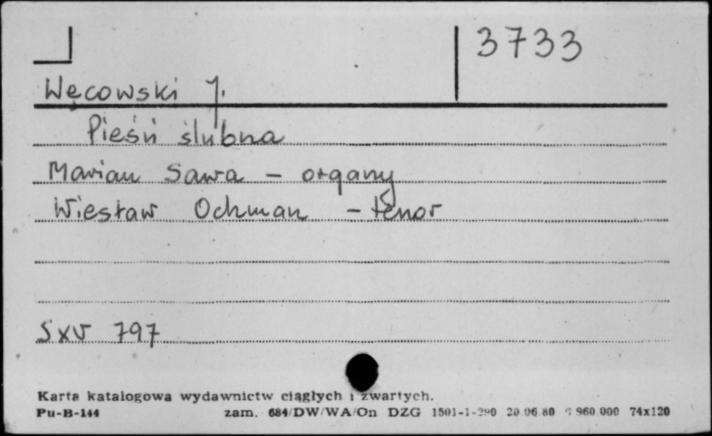 3733
Węcowski J.
Pieśń ślubna
Marian Sawa - organy
Wiesław Ochman - tenor
SXV 797
Karta katalogowa wydawnictw ciągłych i zwartych.
Pu-B-144 zam. 684/DW/WA/On DZG 1501-1- 20.06.80 960.000 74x120